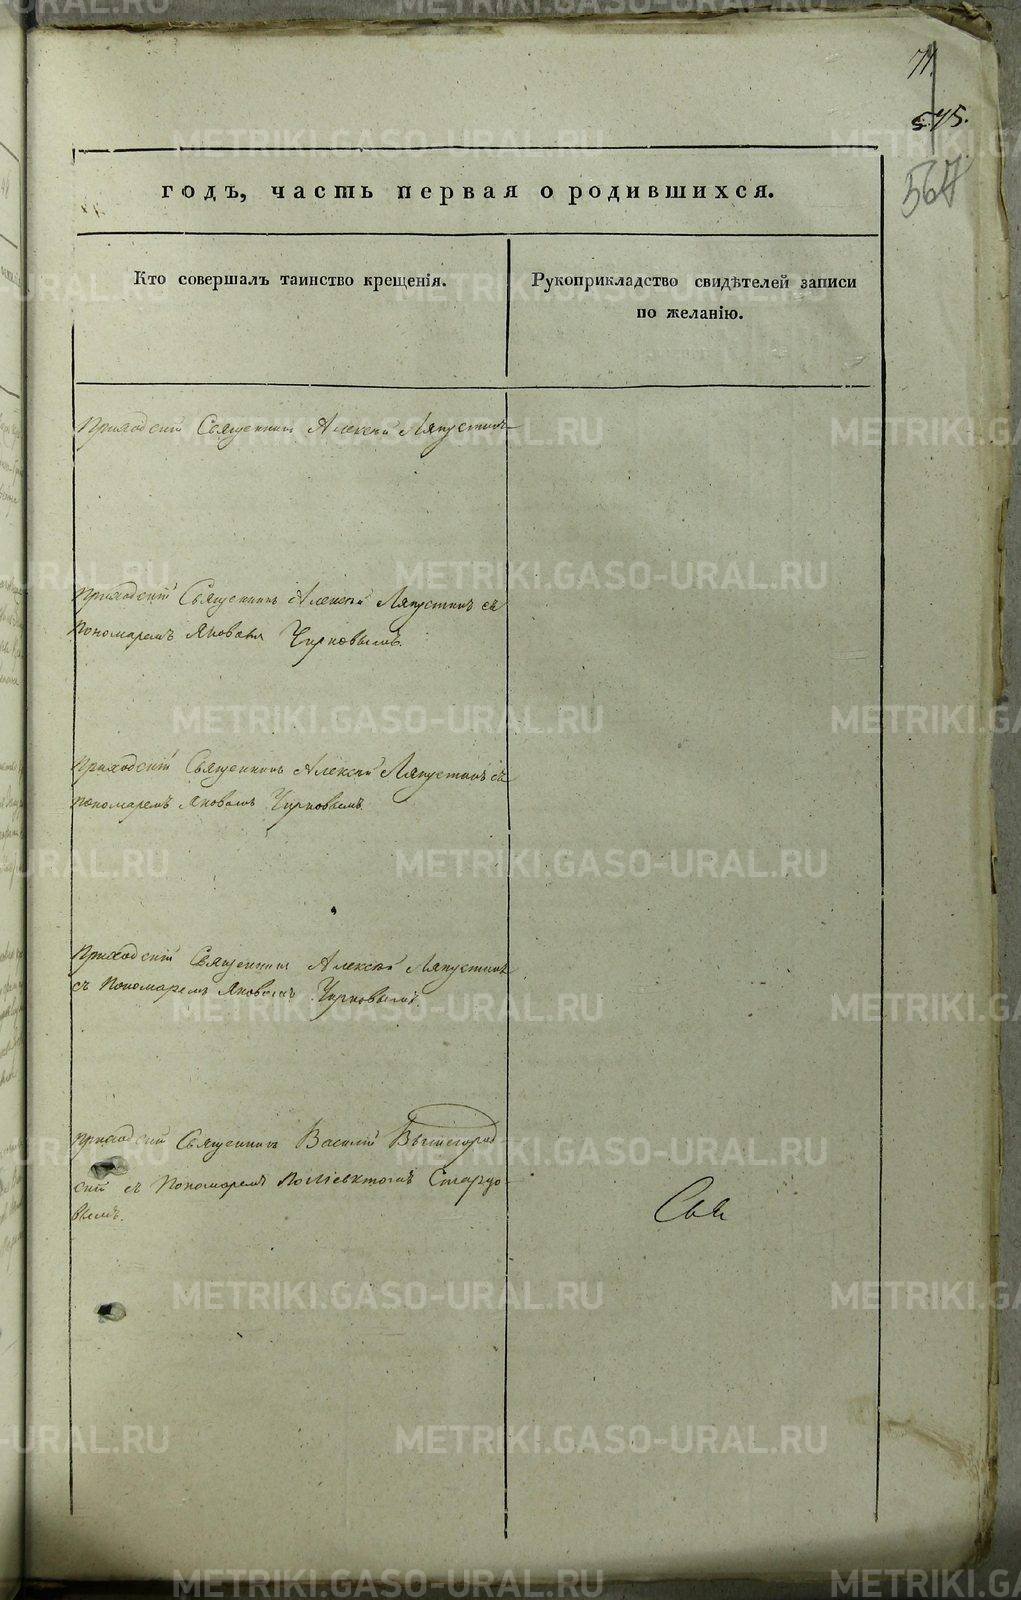 71.
575.
567
годъ, часть первая о родившихся.
Кто совершалъ таинство крещенія.
Рукоприкладство свидѣтелей записи
по желанію.
Приходскій Священникъ Алексѣй Ляпустинъ
Приходскій Священникъ Алексѣй Ляпустинъ съ
Пономаремъ Яковомъ Чирковымъ.
Приходскій Священникъ Алексѣй Ляпустинъ съ
пономаремъ Яковомъ Чирковымъ.
Приходскій Священникъ Алексѣй Ляпустинъ
съ Пономаремъ Яковомъ Чирковымъ.
Приходскій Священникъ Василій Вышегород
скій съ Пономаремъ Поліевктомъ Старцо-
вымъ.
METRIKI.GASO-URAL.RU